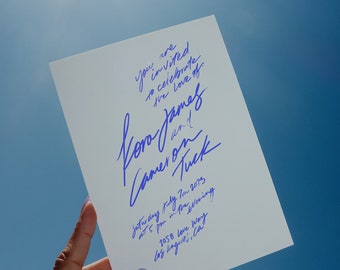 You are
invited
to celebrate
the love of
Kora James
and
Cameron
Tuck
Saturday July 7th, 2073
at 5 pm in the evening
2058 Love Way
Los Angeles, CA